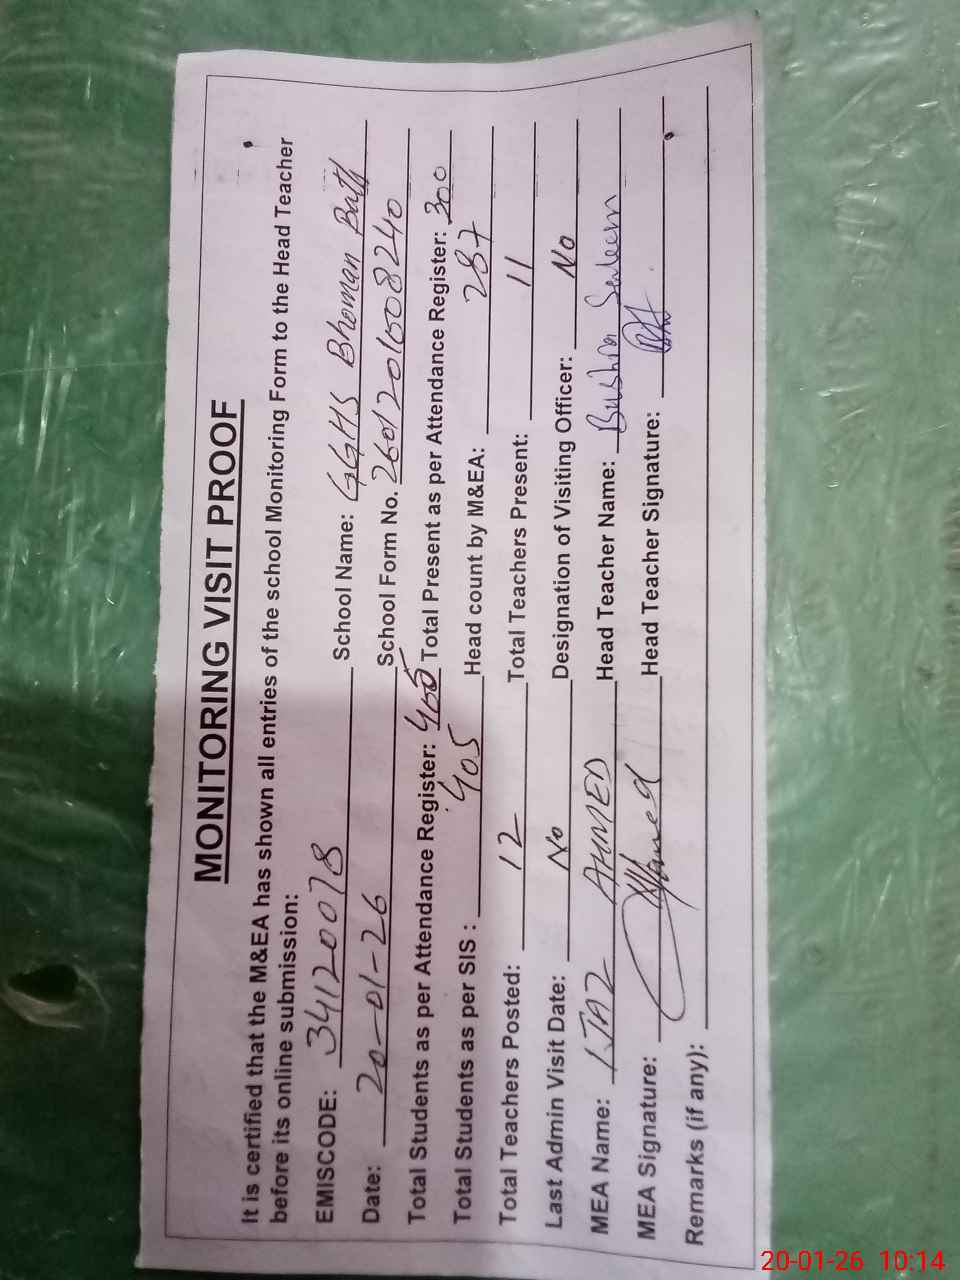 MONITORING VISIT PROOF
It is certified that the M&EA has shown all entries of the school Monitoring Form to the Head Teacher
before its online submission:
EMISCODE: 34120078 School Name: GGHS Bhoman Bath
Date: 20-01-26 School Form No. 26012015008240
Total Students as per Attendance Register: 405 Total Present as per Attendance Register: 300
Total Students as per SIS : 405 Head count by M&EA: 287
Total Teachers Posted: 12 Total Teachers Present: 11
Last Admin Visit Date: No Designation of Visiting Officer: No
MEA Name: IJAZ AHMED Head Teacher Name: Bushra Saleem
MEA Signature: Ahmed Head Teacher Signature:
Remarks (if any):
20-01-26 10:14